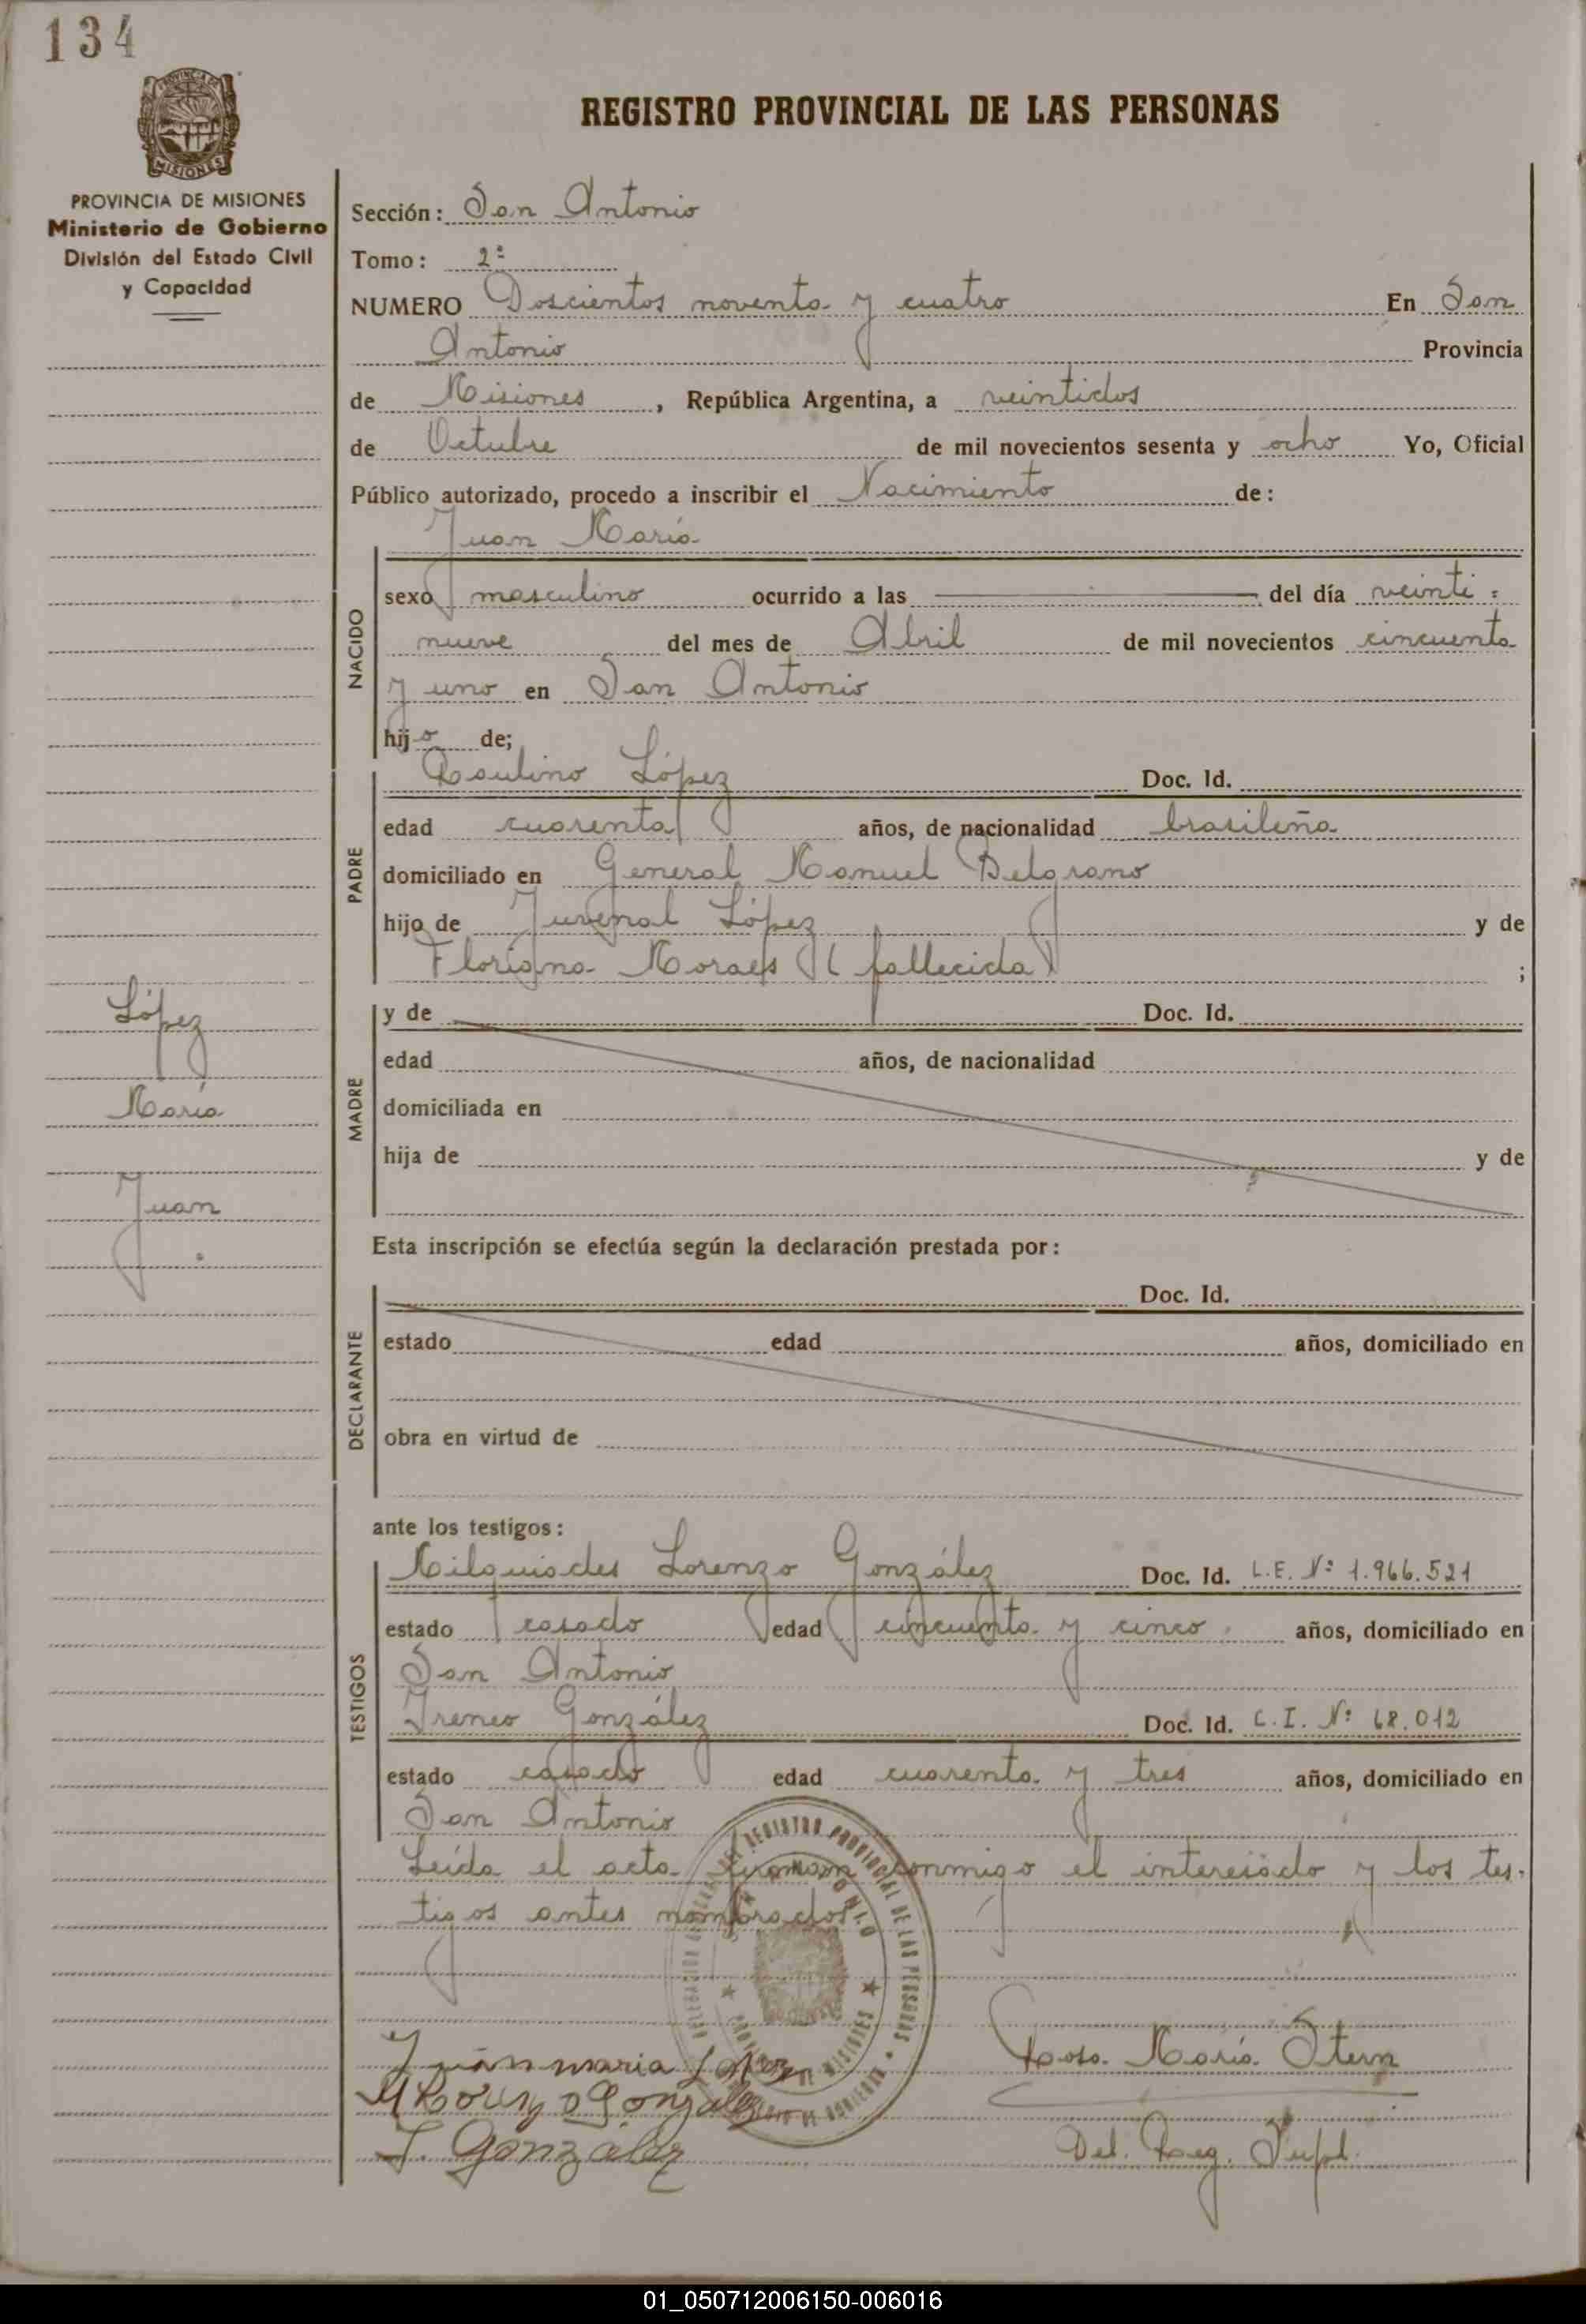 134
PROVINCIA DE MISIONES
MISIONES
PROVINCIA DE MISIONES
Ministerio de Gobierno
División del Estado Civil
y Capacidad
REGISTRO PROVINCIAL DE LAS PERSONAS
Sección: San Antonio
Tomo: 2º
NUMERO Doscientos noventa y cuatro En San
Antonio Provincia
de Misiones, República Argentina, a veintidos
de Octubre de mil novecientos sesenta y ocho Yo, Oficial
Público autorizado, procedo a inscribir el Nacimiento de:
Juan María
NACIDO
sexo masculino ocurrido a las del día veinti=
nueve del mes de Abril de mil novecientos cincuenta
y uno en San Antonio
hijo de;
PADRE
Raulino López Doc. Id.
edad cuarenta años, de nacionalidad brasileña
domiciliado en General Manuel Belgrano
hijo de Juvenal López y de
Floriana Moraes (fallecida) ;
López
María
Juan
MADRE
y de Doc. Id.
edad años, de nacionalidad
domiciliada en
hija de y de
Esta inscripción se efectúa según la declaración prestada por:
DECLARANTE
Doc. Id.
estado edad años, domiciliado en
obra en virtud de
ante los testigos:
TESTIGOS
Milquiades Lorenzo González Doc. Id. L.E. Nº 1.966.521
estado casado edad cincuenta y cinco años, domiciliado en
San Antonio
Ireneo González Doc. Id. C.I. Nº 68.012
estado casado edad cuarenta y tres años, domiciliado en
San Antonio
Leída el acta firman conmigo el interesado y los tes-
tigos antes nombrados
REGISTRO PROVINCIAL DE LAS PERSONAS
Juan maria Lopez
Rosa María Stern
González
J. González
Del. Reg. Supl.
01_050712006150-006016